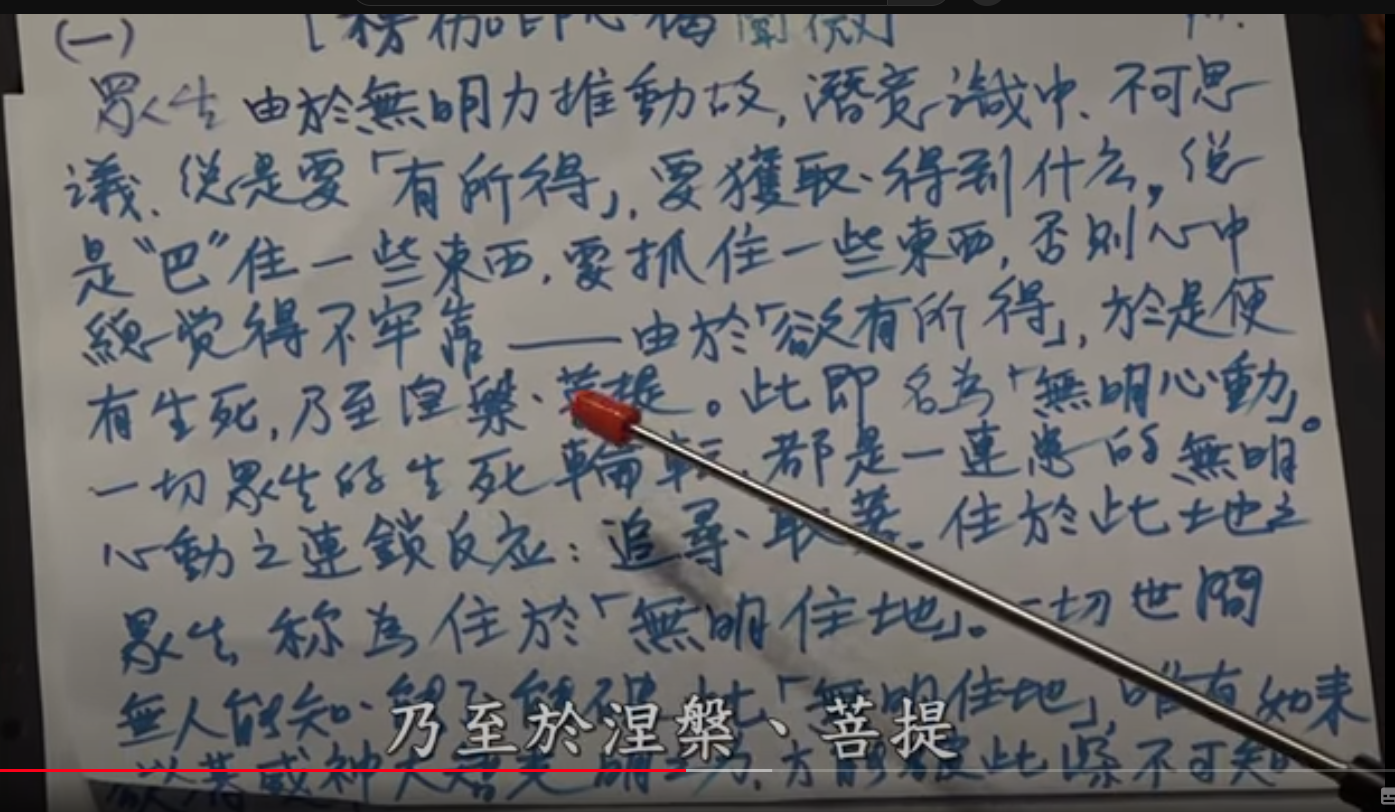 (一) [楞伽印心 闡微]
眾生由於無明力推動故,潛意識中、不可思
議、總是要「有所得」,要獲取、得到什么,總
是“巴”住一些東西,要抓住一些東西,否則心中
總觉得不牢靠——由於「欲有所得」,於是便
有生死,乃至涅槃、菩提。此即名為「無明心動」。
一切眾生的生死輪転,都是一連串的無明
心動之連鎖反应:追尋、取著。住於此土地之
眾生,称為住於「無明住地」。一切世間
無人能知、 此「無明住地」,唯有如来
以其威神大智 方能 此 不可知
乃至於涅槃、菩提